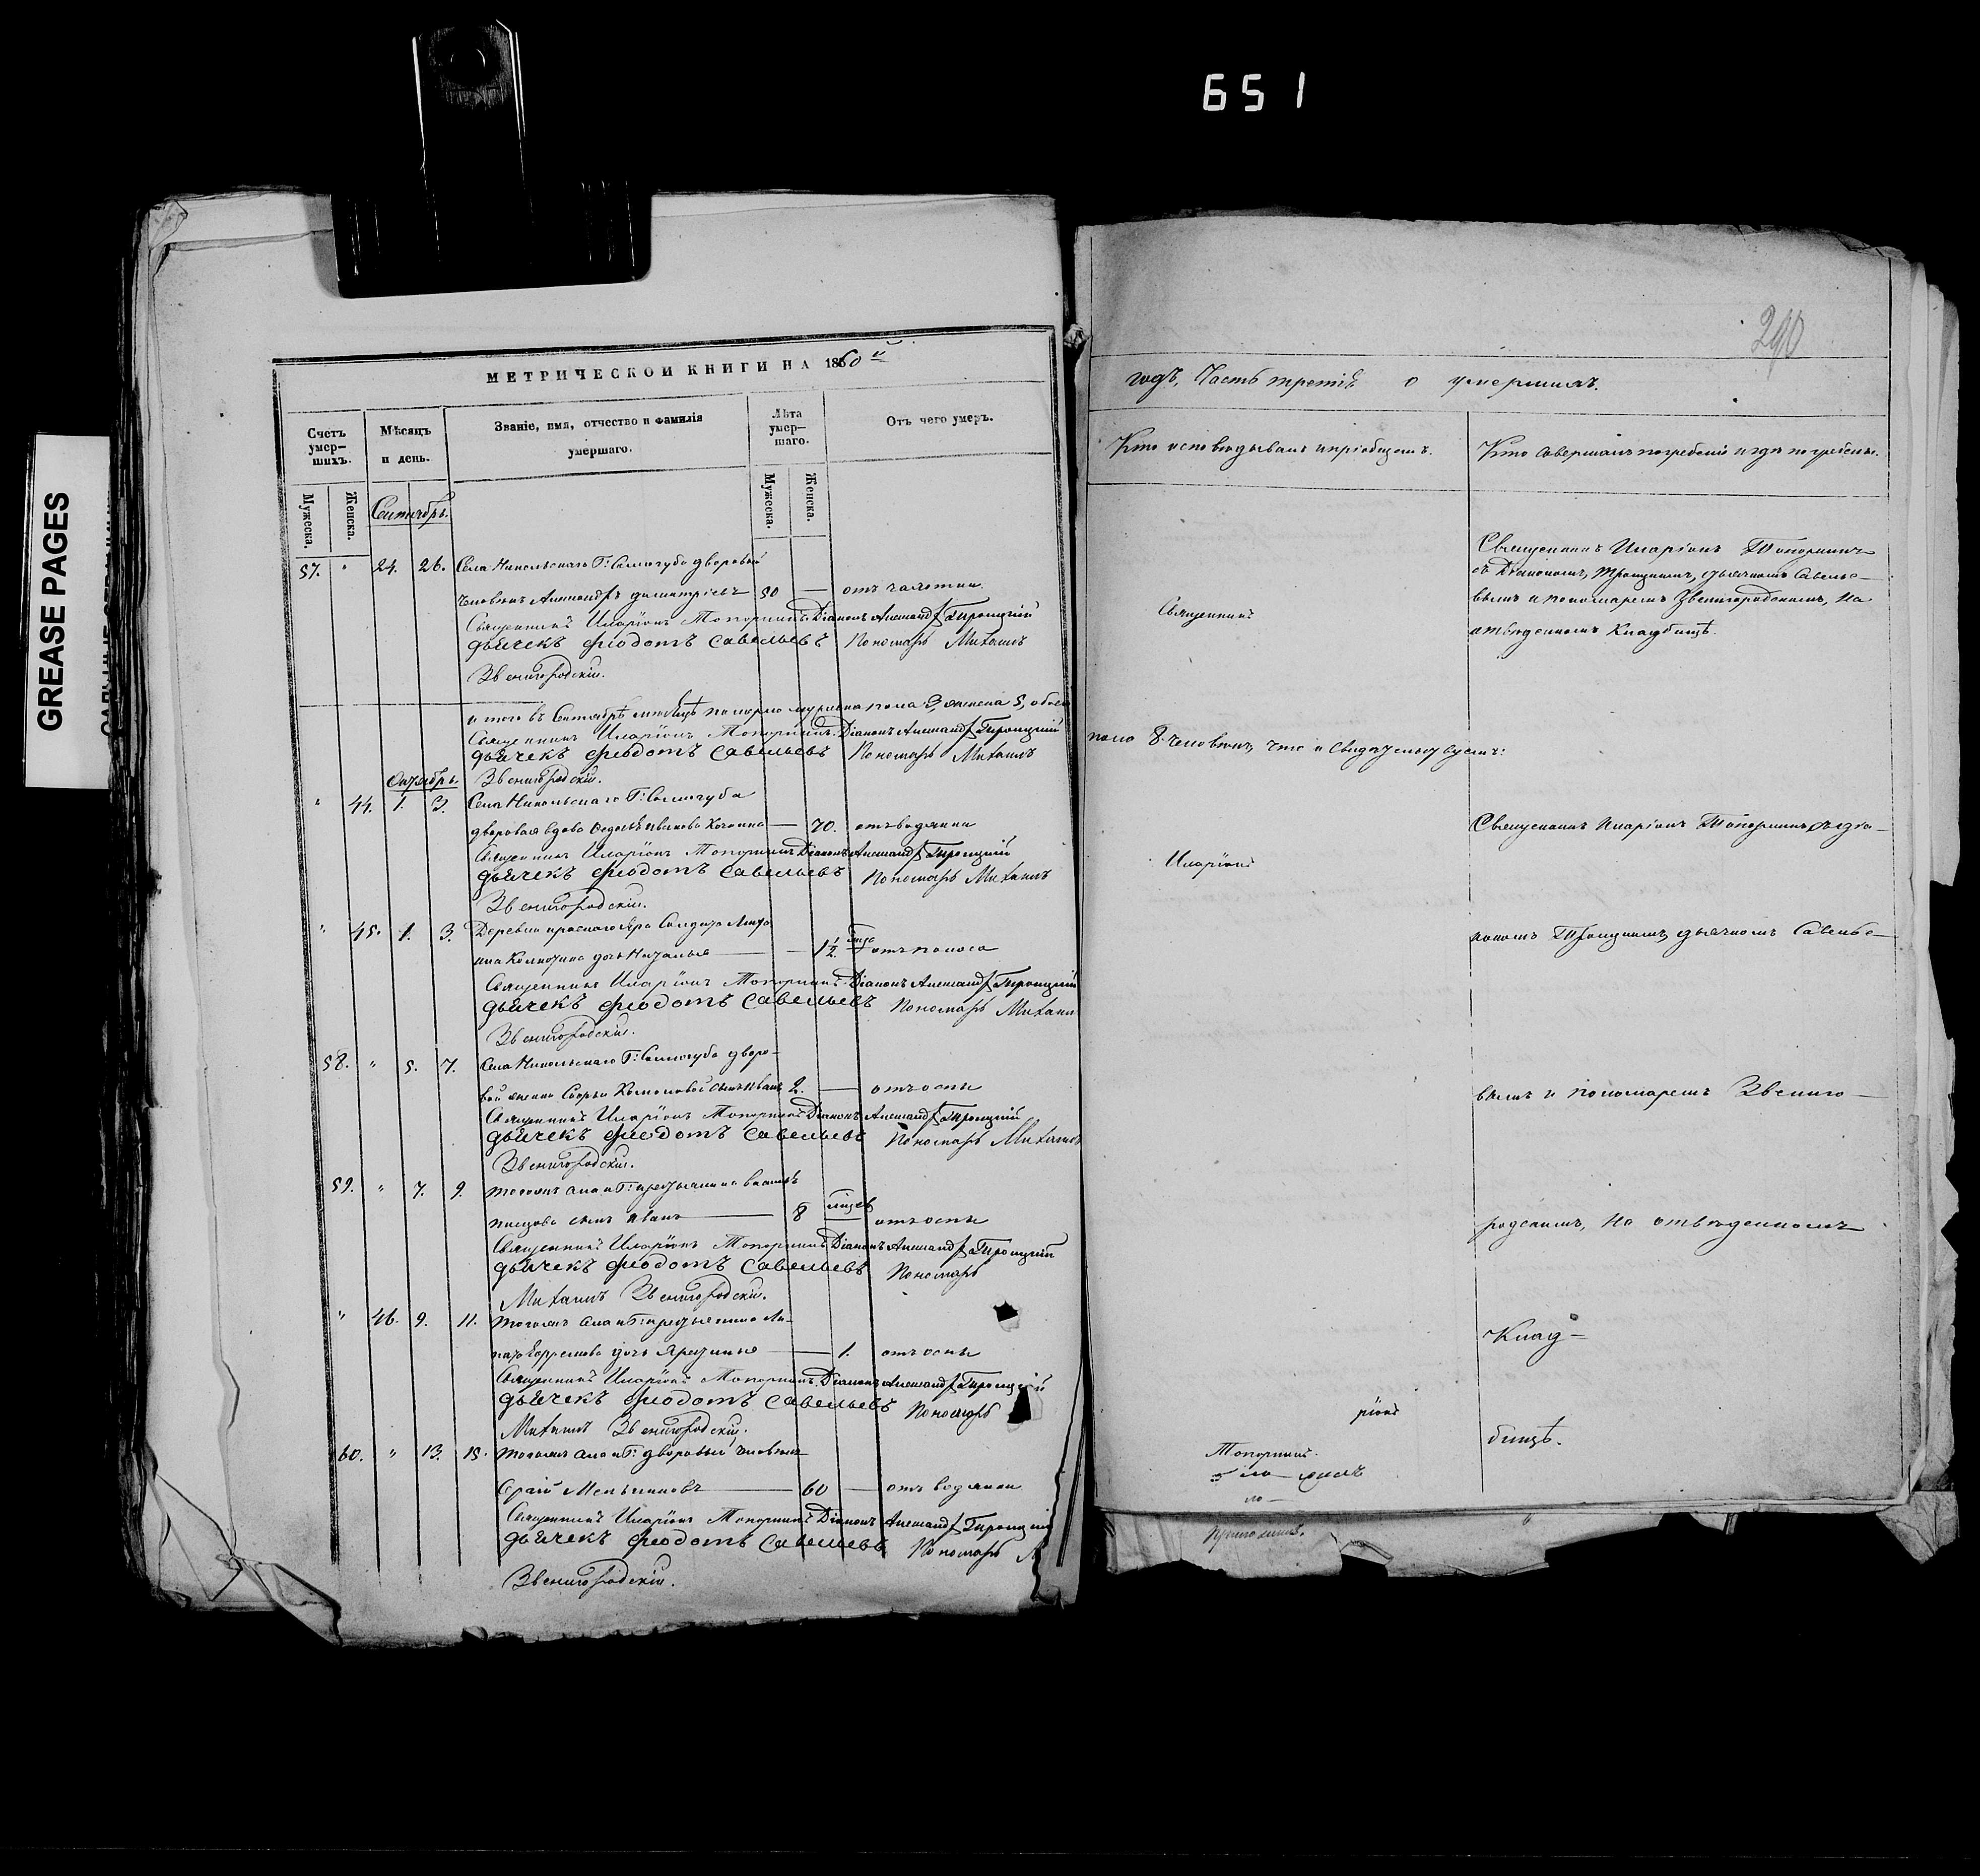 651
GREASE PAGES
МЕТРИЧЕСКОЙ КНИГИ НА 1860й
Счетъ умер-шихъ.
Мѣсяцъ и день.
Званіе, имя, отчество и фамилія умершаго.
Лѣта умер-шаго.
Отъ чего умеръ.
Мужеска.
Женска.
Мужеска.
Женска.
Сентябрь.
57. " 24. 26. Села Никольскаго Г: Сологуба дворовый
человѣкъ Александръ Димитріевъ 50 — отъ чахотки
Священникъ Иларіонъ Топорнинъ Діаконъ Александръ Троицкій
дьячекъ Феодотъ Савельевъ Пономарь Михаилъ
Звенигородскій.
итого въ Сентябрѣ мѣсяцѣ померло мужеска пола 3, женска 5, обоего
Священникъ Иларіонъ Топорнинъ. Діаконъ Александръ Троицкій
дьячекъ Феодотъ Савельевъ Пономарь Михаилъ
Октябрь. Звенигородскій.
" 44. 1. 3. Села Никольскаго Г: Сологуба
дворовая вдова Ѳедосья Иванова — 70. отъ водянки
Священникъ Иларіонъ Топорнинъ Діаконъ Александръ Троицкій
дьячекъ Феодотъ Савельевъ Пономарь Михаилъ
Звенигородскій.
" 45. 1. 3. Деревни Краснаго Яра Солдата
дочь Наталья — 1½ года отъ поноса
Священникъ Иларіонъ Топорнинъ Діаконъ Александръ Троицкій
дьячекъ Феодотъ Савельевъ Пономарь Михаилъ
Звенигородскій.
58. " 5. 7. Села Никольскаго Г: Сологуба дворо-
вой сынъ Иванъ 2. — отъ оспы
Священникъ Иларіонъ Топорнинъ Діаконъ Александръ Троицкій
дьячекъ Феодотъ Савельевъ Пономарь Михаилъ
Звенигородскій.
59. " 7. 9. тогожъ села и Г: крестьянина
сынъ Иванъ — 8 отъ оспы
Священникъ Иларіонъ Топорнинъ Діаконъ Александръ Троицкій
дьячекъ Феодотъ Савельевъ Пономарь
Михаилъ Звенигородскій.
" 46. 9. 11. тогожъ села и Г: крестьянина
дочь — 1. отъ оспы
Священникъ Иларіонъ Топорнинъ. Діаконъ Александръ Троицкій
дьячекъ Феодотъ Савельевъ Пономарь
Михаилъ Звенигородскій.
60. " 13. 15. тогожъ села и Г: дворовый человѣкъ
— 60 — отъ водянки
Священникъ Иларіонъ Топорнинъ Діаконъ Александръ Троицкій
дьячекъ Феодотъ Савельевъ Пономарь М
Звенигородскій.
290
годъ, Часть третія о умершихъ.
Кто исповѣдывалъ и пріобщалъ.
Кто совершалъ погребеніе и гдѣ погребены.
Священникъ Иларіонъ Топорнинъ
съ Діакономъ, Троицкимъ, дьячкомъ Савелье-
вымъ и пономаремъ Звенигородскимъ, на
отведенномъ Кладбищѣ.
Священникъ
пола 8 человѣкъ, что и свидѣтельствуемъ:
Священникъ Иларіонъ Топорнинъ съ діа-
Иларіонъ
кономъ Троицкимъ, дьячкомъ Савелье-
вымъ и пономаремъ Звениго-
родскимъ, на отведенномъ
Клад-
бищѣ.
ріонъ
Топорнинъ.